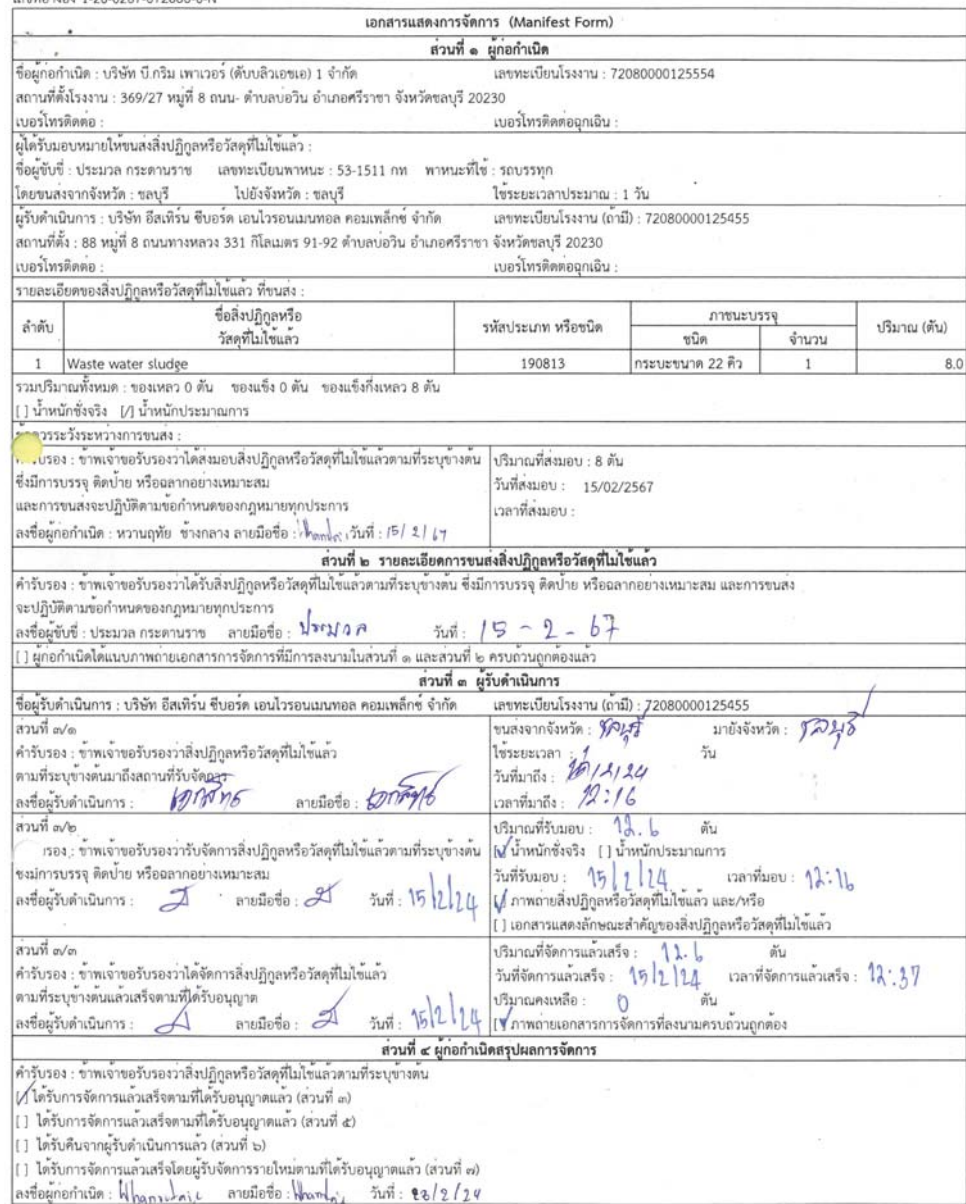 เอกสารแสดงการจัดการ (Manifest Form)
ส่วนที่ ๑ ผู้ก่อกำเนิด
ชื่อผู้ก่อกำเนิด : บริษัท บี.กริม เพาเวอร์ (ดับบลิวเอชเอ) 1 จำกัด เลขทะเบียนโรงงาน : 72080000125554
สถานที่ตั้งโรงงาน : 369/27 หมู่ที่ 8 ถนน- ตำบลบ่อวิน อำเภอศรีราชา จังหวัดชลบุรี 20230
เบอร์โทรติดต่อ : เบอร์โทรติดต่อฉุกเฉิน :
ผู้ได้รับมอบหมายให้ขนส่งสิ่งปฏิกูลหรือวัสดุที่ไม่ใช้แล้ว :
ชื่อผู้ขับขี่ : ประมวล กระดานราช เลขทะเบียนพาหนะ : 53-1511 กท พาหนะที่ใช้ : รถบรรทุก
โดยขนส่งจากจังหวัด : ชลบุรี ไปยังจังหวัด : ชลบุรี ใช้ระยะเวลาประมาณ : 1 วัน
ผู้รับดำเนินการ : บริษัท อีสเทิร์น ซีบอร์ด เอนไวรอนเมนทอล คอมเพล็กซ์ จำกัด เลขทะเบียนโรงงาน (ถ้ามี) : 72080000125455
สถานที่ตั้ง : 88 หมู่ที่ 8 ถนนทางหลวง 331 กิโลเมตร 91-92 ตำบลบ่อวิน อำเภอศรีราชา จังหวัดชลบุรี 20230
เบอร์โทรติดต่อ : เบอร์โทรติดต่อฉุกเฉิน :
รายละเอียดของสิ่งปฏิกูลหรือวัสดุที่ไม่ใช้แล้ว ที่ขนส่ง :
ลำดับ ชื่อสิ่งปฏิกูลหรือ วัสดุที่ไม่ใช้แล้ว รหัสประเภท หรือชนิด ภาชนะบรรจุ ชนิด จำนวน ปริมาณ (ตัน)
1 Waste water sludge 190813 กระบะขนาด 22 คิว 1 8.0
รวมปริมาณทั้งหมด : ของเหลว 0 ตัน ของแข็ง 0 ตัน ของแข็งกึ่งเหลว 8 ตัน
[ ] น้ำหนักชั่งจริง [/] น้ำหนักประมาณการ
ควรระวังระหว่างการขนส่ง :
รับรอง : ข้าพเจ้าขอรับรองว่าได้ส่งมอบสิ่งปฏิกูลหรือวัสดุที่ไม่ใช้แล้วตามที่ระบุข้างต้น ปริมาณที่ส่งมอบ : 8 ตัน
ซึ่งมีการบรรจุ ติดป้าย หรือฉลากอย่างเหมาะสม วันที่ส่งมอบ : 15/02/2567
และการขนส่งจะปฏิบัติตามข้อกำหนดของกฎหมายทุกประการ เวลาที่ส่งมอบ :
ลงชื่อผู้ก่อกำเนิด : หวานฤทัย ช้างกลาง ลายมือชื่อ : วันที่ : 15/2/67
ส่วนที่ ๒ รายละเอียดการขนส่งสิ่งปฏิกูลหรือวัสดุที่ไม่ใช้แล้ว
คำรับรอง : ข้าพเจ้าขอรับรองว่าได้รับสิ่งปฏิกูลหรือวัสดุที่ไม่ใช้แล้วตามที่ระบุข้างต้น ซึ่งมีการบรรจุ ติดป้าย หรือฉลากอย่างเหมาะสม และการขนส่ง
จะปฏิบัติตามข้อกำหนดของกฎหมายทุกประการ
ลงชื่อผู้ขับขี่ : ประมวล กระดานราช ลายมือชื่อ : ประมวล วันที่ : 15-2-67
[ ] ผู้ก่อกำเนิดได้แนบภาพถ่ายเอกสารการจัดการที่มีการลงนามในส่วนที่ ๑ และส่วนที่ ๒ ครบถ้วนถูกต้องแล้ว
ส่วนที่ ๓ ผู้รับดำเนินการ
ชื่อผู้รับดำเนินการ : บริษัท อีสเทิร์น ซีบอร์ด เอนไวรอนเมนทอล คอมเพล็กซ์ จำกัด เลขทะเบียนโรงงาน (ถ้ามี) : 72080000125455
ส่วนที่ ๓/๑ ขนส่งจากจังหวัด : ชลบุรี มายังจังหวัด : ชลบุรี
คำรับรอง : ข้าพเจ้าขอรับรองว่าสิ่งปฏิกูลหรือวัสดุที่ไม่ใช้แล้ว ใช้ระยะเวลา : 1 วัน
ตามที่ระบุข้างต้นมาถึงสถานที่รับจัดการ วันที่มาถึง : /2/24
ลงชื่อผู้รับดำเนินการ : เอกสิทธ์ ลายมือชื่อ : เอกสิทธ์ เวลาที่มาถึง : 12:16
ส่วนที่ ๓/๒ ปริมาณที่รับมอบ : 12.6 ตัน
รอง : ข้าพเจ้าขอรับรองว่ารับจัดการสิ่งปฏิกูลหรือวัสดุที่ไม่ใช้แล้วตามที่ระบุข้างต้น [✓] น้ำหนักชั่งจริง [ ] น้ำหนักประมาณการ
ซึ่งมีการบรรจุ ติดป้าย หรือฉลากอย่างเหมาะสม วันที่รับมอบ : 15/2/24 เวลาที่มอบ : 12:16
ลงชื่อผู้รับดำเนินการ : ลายมือชื่อ : วันที่ : 15/2/24 [✓] ภาพถ่ายสิ่งปฏิกูลหรือวัสดุที่ไม่ใช้แล้ว และ/หรือ
[ ] เอกสารแสดงลักษณะสำคัญของสิ่งปฏิกูลหรือวัสดุที่ไม่ใช้แล้ว
ส่วนที่ ๓/๓ ปริมาณที่จัดการแล้วเสร็จ : 12.6 ตัน
คำรับรอง : ข้าพเจ้าขอรับรองว่าได้จัดการสิ่งปฏิกูลหรือวัสดุที่ไม่ใช้แล้ว วันที่จัดการแล้วเสร็จ : 15/2/24 เวลาที่จัดการแล้วเสร็จ : 12:37
ตามที่ระบุข้างต้นแล้วเสร็จตามที่ได้รับอนุญาต ปริมาณคงเหลือ : 0 ตัน
ลงชื่อผู้รับดำเนินการ : ลายมือชื่อ : วันที่ : 15/2/24 [✓] ภาพถ่ายเอกสารการจัดการที่ลงนามครบถ้วนถูกต้อง
ส่วนที่ ๔ ผู้ก่อกำเนิดสรุปผลการจัดการ
คำรับรอง : ข้าพเจ้าขอรับรองว่าสิ่งปฏิกูลหรือวัสดุที่ไม่ใช้แล้วตามที่ระบุข้างต้น
[/] ได้รับการจัดการแล้วเสร็จตามที่ได้รับอนุญาตแล้ว (ส่วนที่ ๓)
[ ] ได้รับการจัดการแล้วเสร็จตามที่ได้รับอนุญาตแล้ว (ส่วนที่ ๕)
[ ] ได้รับคืนจากผู้รับดำเนินการแล้ว (ส่วนที่ ๖)
[ ] ได้รับการจัดการแล้วเสร็จโดยผู้รับจัดการรายใหม่ตามที่ได้รับอนุญาตแล้ว (ส่วนที่ ๗)
ลงชื่อผู้ก่อกำเนิด : ลายมือชื่อ : วันที่ : 23/2/24